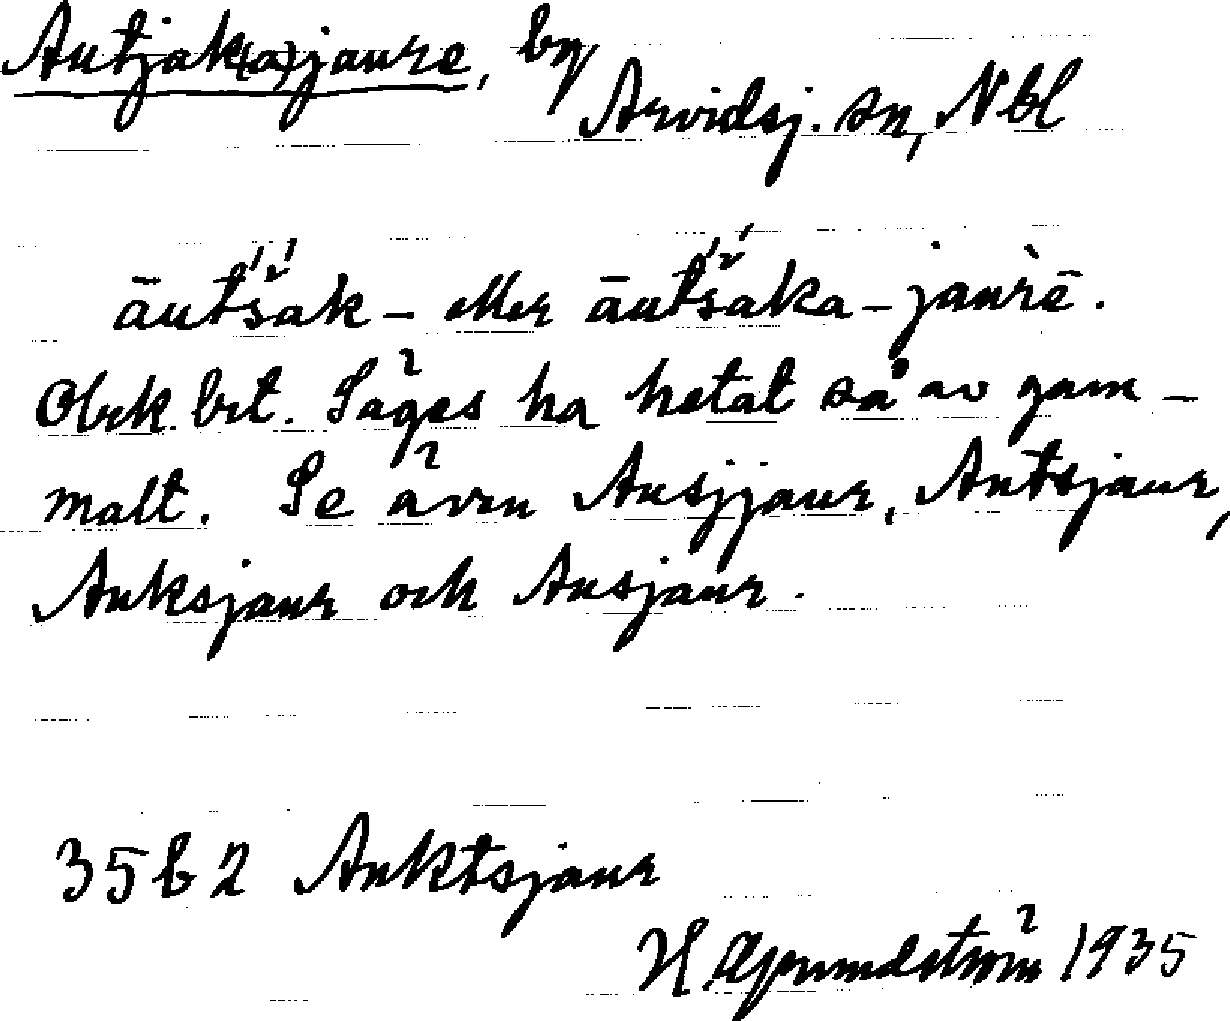 Autjak(a)jaure, by
Arvidsj. sn, Nbl
āutšak- eller āutšaka-jaùrē.
Obek. brt. Säges ha hetat så av gam-
malt. Se även Ausjjaur, Autsjaur,
Auksjaur och Ausjaur.
35 b 2 Auktsjaur
H. Grundström 1935